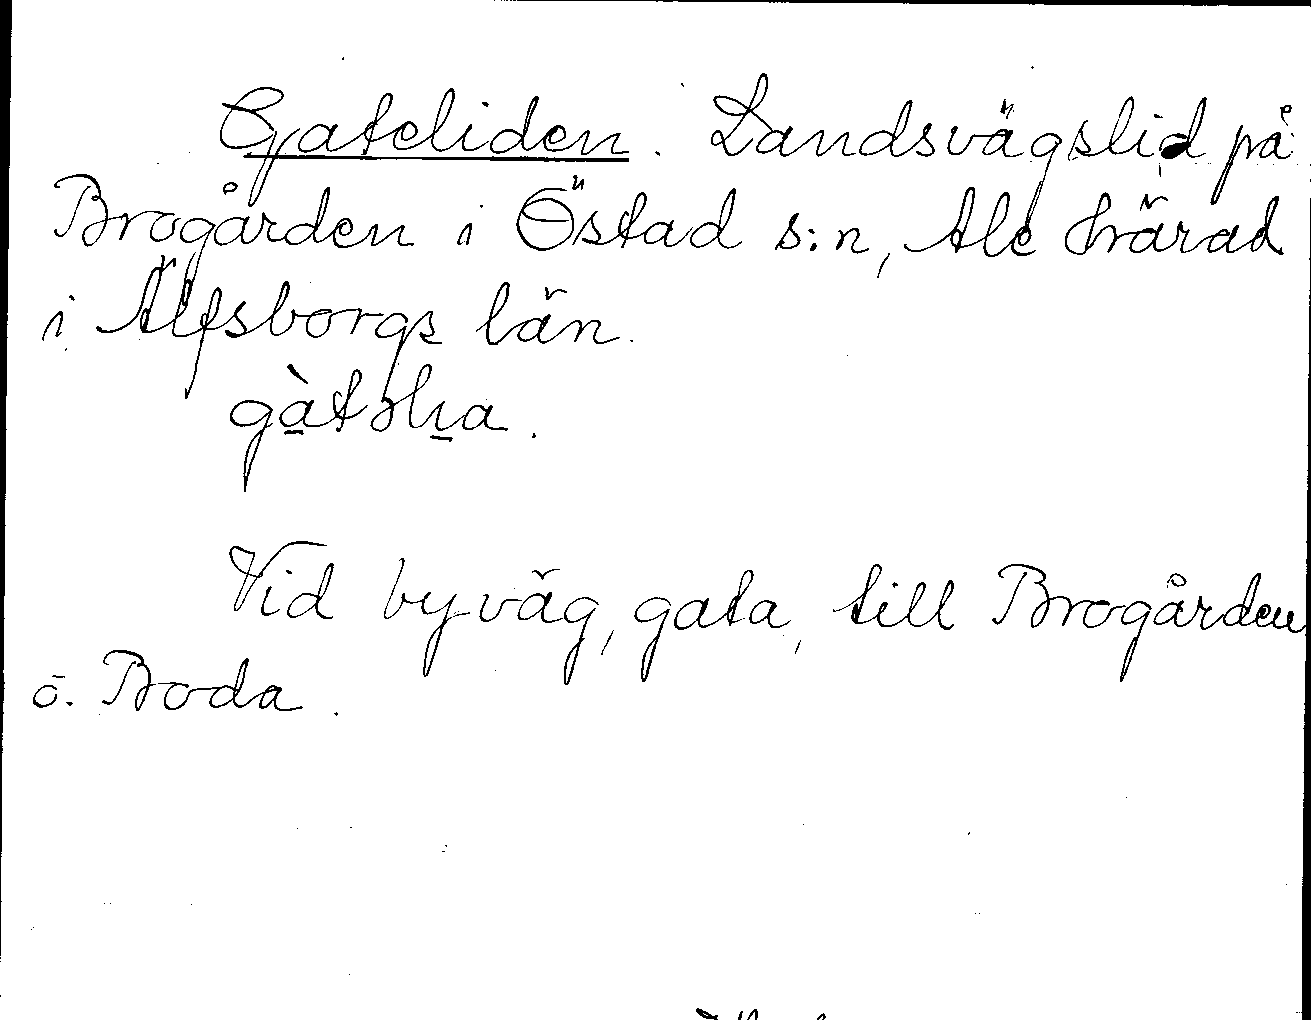 Gateliden. Landsvägslid på
Brogården i Östad s:n, Ale härad
i Älfsborgs län.
gàtəlɩa.
Vid byväg, gata, till Brogården
o. Boda.